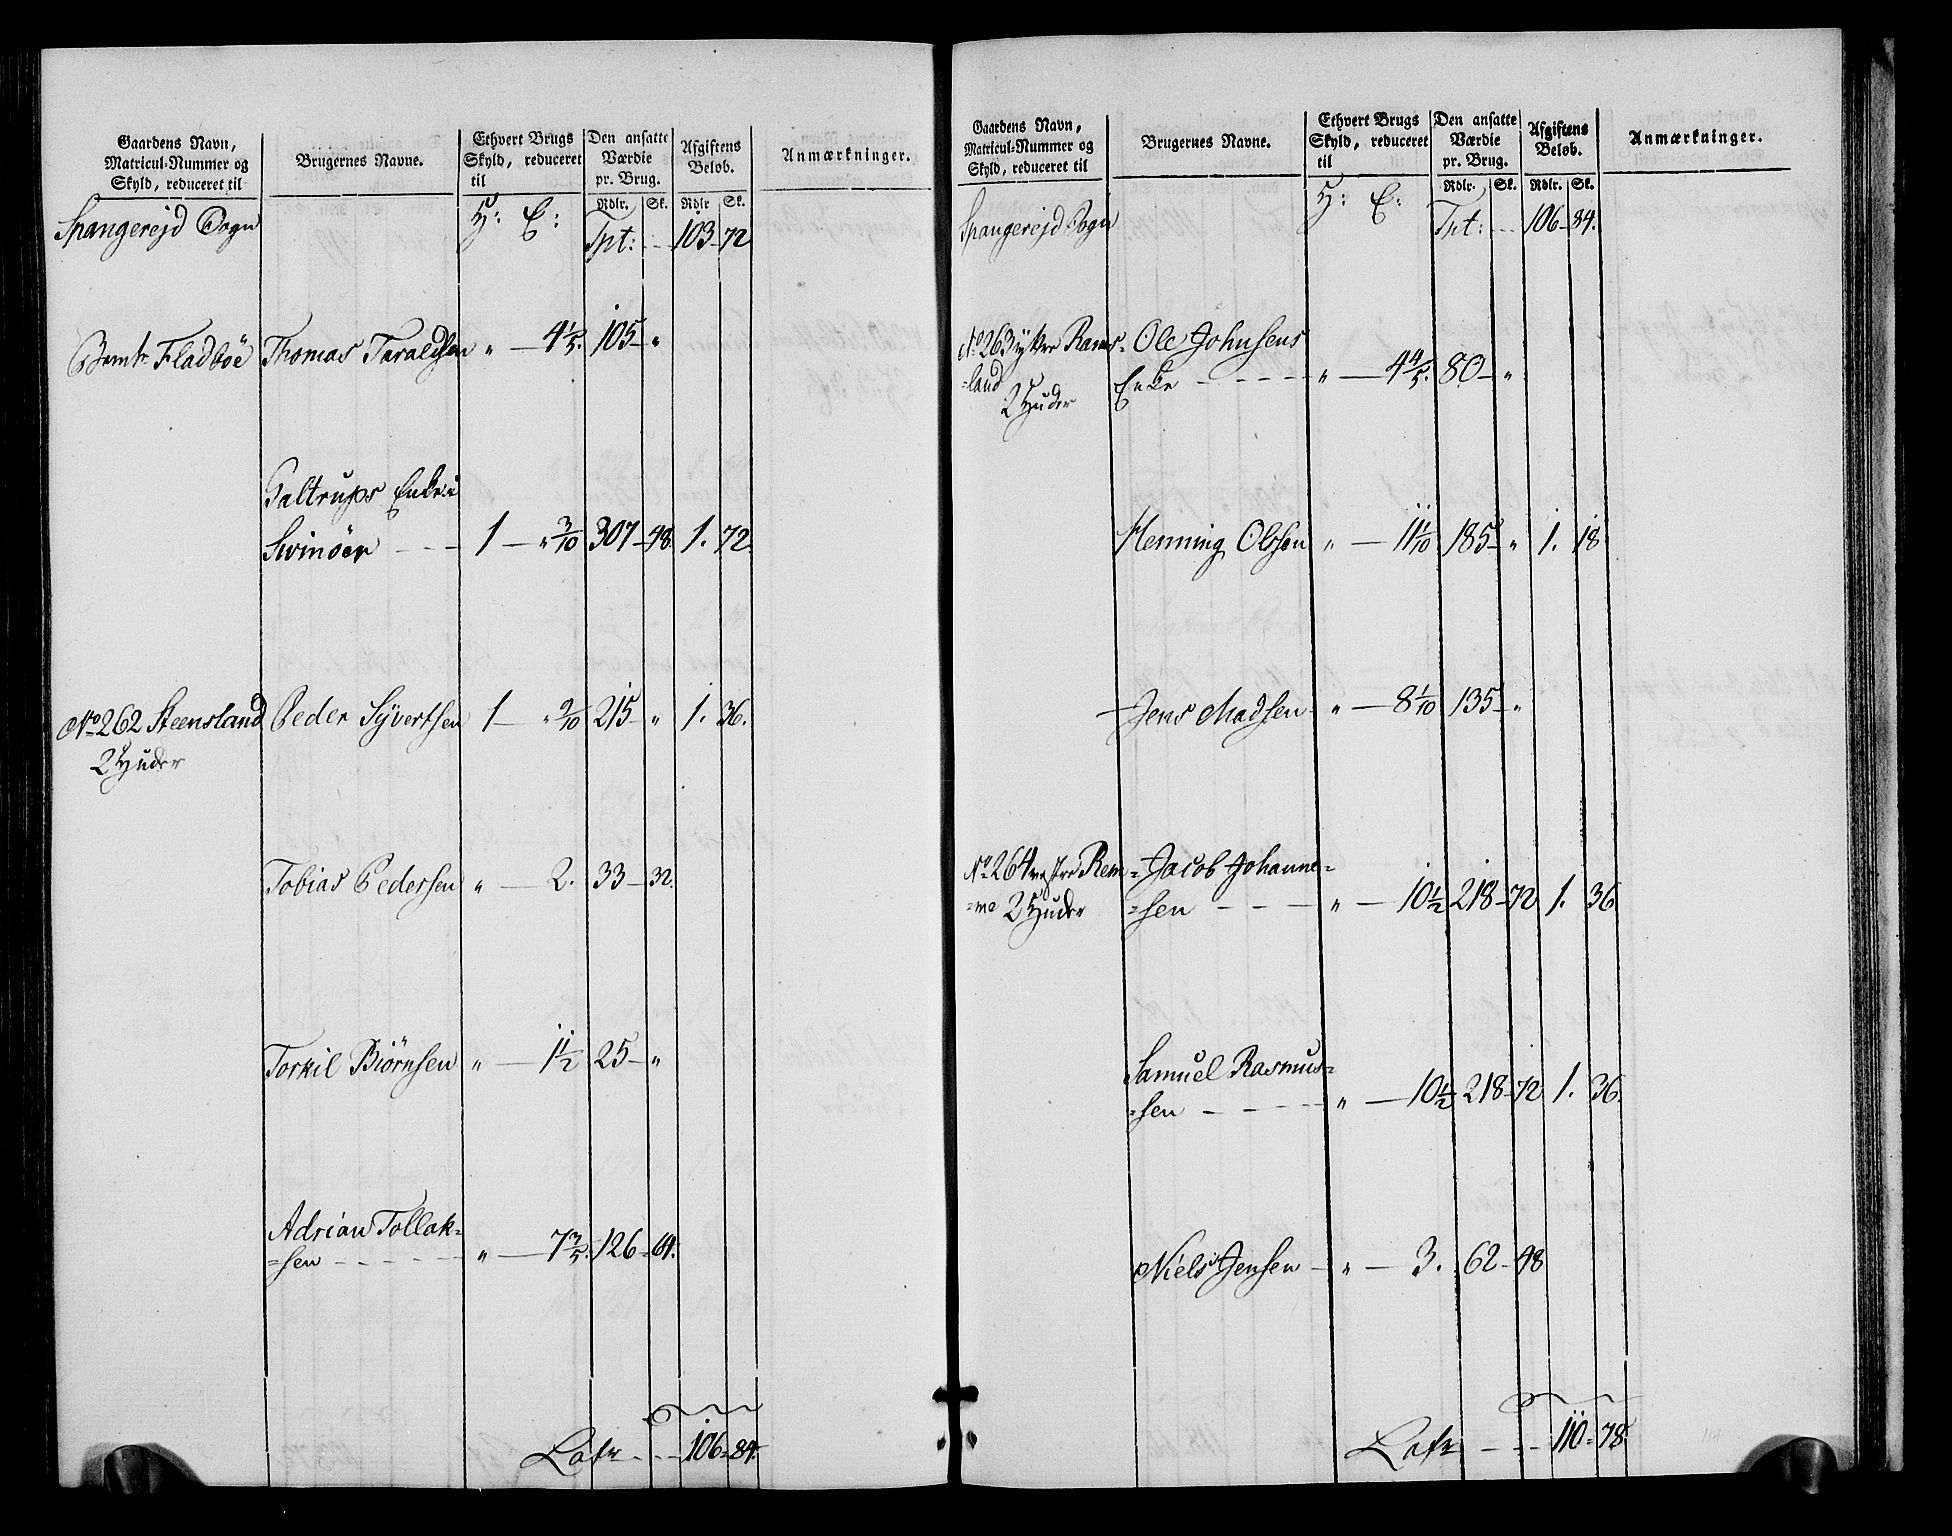 Gaardens Navn, Matricul-Nummer og Skyld, reduceret til
Brugernes Navne.
Ethvert Brugs Skyld, reduceret til
Den ansatte Værdie pr. Brug.
Afgiftens Beløb.
Anmærkninger.
Rdlr. Sk. Rdlr Sk.
Spangerejd Sogn H: E: Tpt: 103 - 72
Fladböe Thomas Taraldsen " — 4 1/5. 105 - "
Galtrups Enke i
Svinöer - - - 1 — " 3/10 307 - 48. 1. 72.
No 262 Steensland Peder Syvertsen 1 — " 2/10 215 - " 1. 36.
2 Huder
Tobias Pedersen " — 2. 33 - 32.
Torkil Biörnsen " — 1 1/2 25 - "
Adrian Tollak=
=sen - - - - - " — 7 3/5. 126 - 64.
Lats - - - 106 - 84.
Gaardens Navn, Matricul-Nummer og Skyld, reduceret til
Brugernes Navne.
Ethvert Brugs Skyld, reduceret til
Den ansatte Værdie pr. Brug.
Afgiftens Beløb.
Anmærkninger.
Rdlr. Sk. Rdlr. Sk.
Spangerejd Sogn H: E: Tpt: 106 - 84.
No 263 ytre Rams= Ole Johnsens
=land Enke - - - - " — 4 4/5. 80 - "
2 Huder
Henning Olssen " — 11 1/10 185 - " 1. 18
Jens Madsen - " — 8 1/10 135 - "
No 264 vestre Rem= Jacob Johanne=
=me 2 Huder =sen - - - " — 10 1/2 218 - 72 1. 36
Samuel Rasmus=
=sen - - - - " — 10 1/2 218 - 72 1. 36.
Niels Jensen - " — 3. 62 - 48
Lats - - - 110 - 78